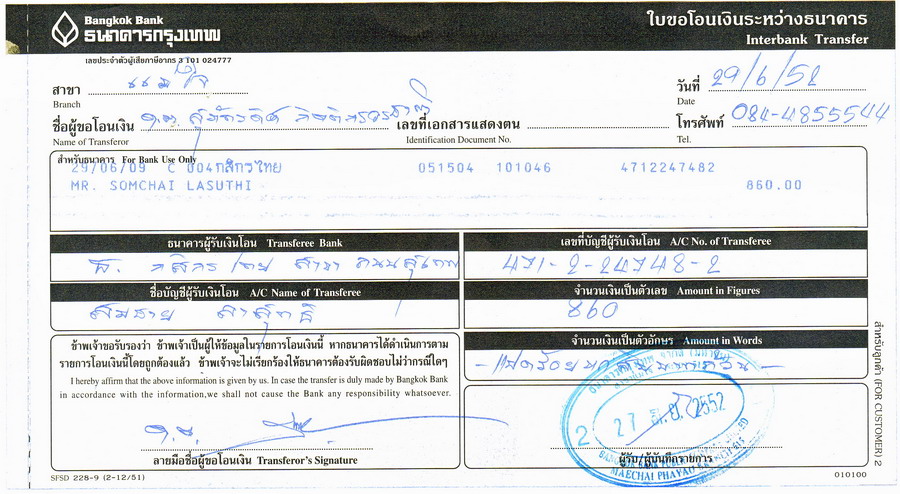 Bangkok Bank
ธนาคารกรุงเทพ
ใบขอโอนเงินระหว่างธนาคาร
Interbank Transfer
เลขประจำตัวผู้เสียภาษีอากร 3 101 024777
สาขา
Branch
วันที่ 29/6/52
Date
ชื่อผู้ขอโอนเงิน
Name of Transferor
เลขที่เอกสารแสดงตน
Identification Document No.
โทรศัพท์ 084-4855544
Tel.
สำหรับธนาคาร For Bank Use Only
29/06/09 C ป04กสิกรไทย 051504 101046 4712247482
MR. SOMCHAI LASUTHI 860.00
ธนาคารผู้รับเงินโอน Transferee Bank
เลขที่บัญชีผู้รับเงินโอน A/C No. of Transferee
ธ. กสิกรไทย สาขา ถนนสุเทพ
471-2-24748-2
ชื่อบัญชีผู้รับเงินโอน A/C Name of Transferee
จำนวนเงินเป็นตัวเลข Amount in Figures
สมชาย ลาสุทธิ
860
ข้าพเจ้าขอรับรองว่า ข้าพเจ้าเป็นผู้ให้ข้อมูลในรายการโอนเงินนี้ หากธนาคารได้ดำเนินการตาม
รายการโอนเงินนี้โดยถูกต้องแล้ว ข้าพเจ้าจะไม่เรียกร้องให้ธนาคารต้องรับผิดชอบไม่ว่ากรณีใดๆ
I hereby affirm that the above information is given by us. In case the transfer is duly made by Bangkok Bank
in accordance with the information,we shall not cause the Bank any responsibility whatsoever.
จำนวนเงินเป็นตัวอักษร Amount in Words
- แปดร้อยหกสิบบาทถ้วน -
2
27 มิ.ย. 2552
MAECHAI PHAYAO
ลายมือชื่อผู้ขอโอนเงิน Transferor's Signature
ผู้รับ/ผู้บันทึกรายการ
สำหรับลูกค้า (FOR CUSTOMER) 2
SFSD 228-9 (2-12/51)
010100